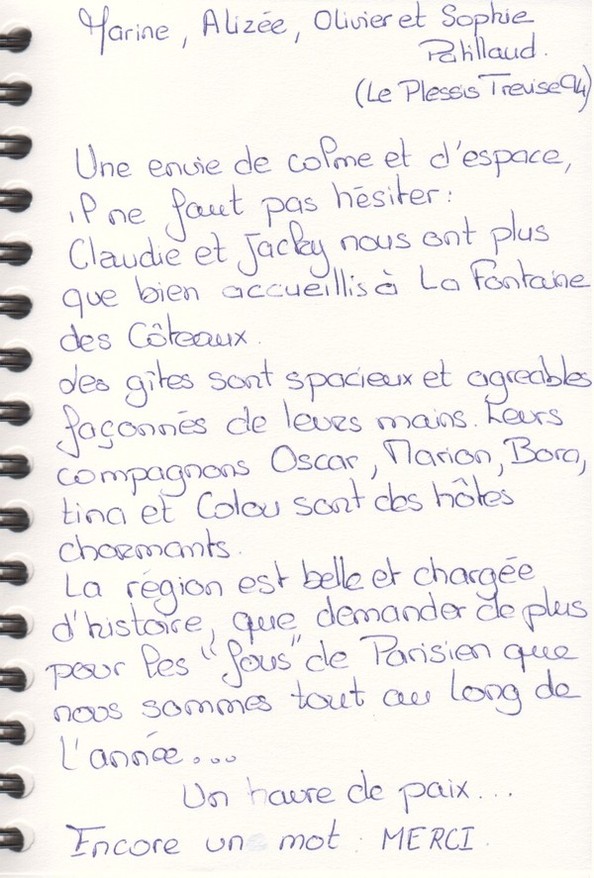 Marine, Alizée, Olivier et Sophie
Patillaud.
(Le Plessis Trevise 94)
Une envie de calme et d'espace,
il ne faut pas hésiter :
Claudie et Jacky nous ont plus
que bien accueillis à La Fontaine
des Côteaux.
des gîtes sont spacieux et agreables
façonnés de leurs mains. Leurs
compagnons Oscar, Marion, Bora,
tina et Colou sont des hôtes
charmants.
La région est belle et chargée
d'histoire, que demander de plus
pour les "fous" de Parisien que
nous sommes tout au long de
l'année...
Un havre de paix...
Encore un mot : MERCI.